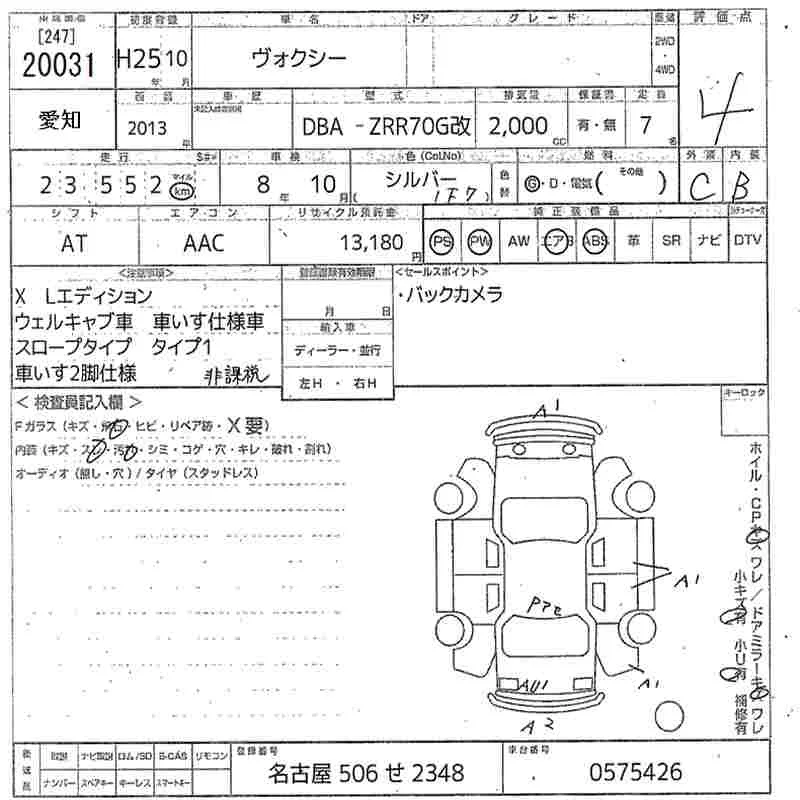 初度登録 車名 ドア グレード 評価点
[247]
20031 H25 10 ヴォクシー 2WD
年 月 ・
4WD
4
車歴 型式 排気量 保証書 定員
愛知 2013 DBA -ZRR70G改 2,000 有・無 7
年 cc 名
走行 車検 色(Col.No) 燃料 外装 内装
23,552 マイル km 8年 10月 シルバー 1F7 色替 G・D・電気( その他 ) C B
シフト エアコン リサイクル預託金 純正装備品
AT AAC 13,180円 PS PW AW エアB ABS 革 SR ナビ DTV
<注意事項> 登録書類有効期限 <セールスポイント>
X Lエディション ・バックカメラ
月 日
ウェルキャブ車 車いす仕様車 輸入車
スロープタイプ タイプ1 ディーラー・並行
車いす2脚仕様 非課税 左H ・ 右H
<検査員記入欄> キーロック
Fガラス(キズ・飛石・ヒビ・リペア跡・X要)
内装(キズ・スレ・汚れ・シミ・コゲ・穴・キレ・破れ・割れ)
オーディオ(無し・穴)/タイヤ(スタッドレス)
A1
A1
A1
AU1
A2
ホイル・CPキズ ワレ/ドアミラーキズ ワレ
小キズ有 小U有 補修有
後送品 取説 ナビ取説 ロム/SD B-CAS リモコン 登録番号 車台番号
ナンバー スペアキー キーレス スマートキー 名古屋 506 せ 2348 0575426